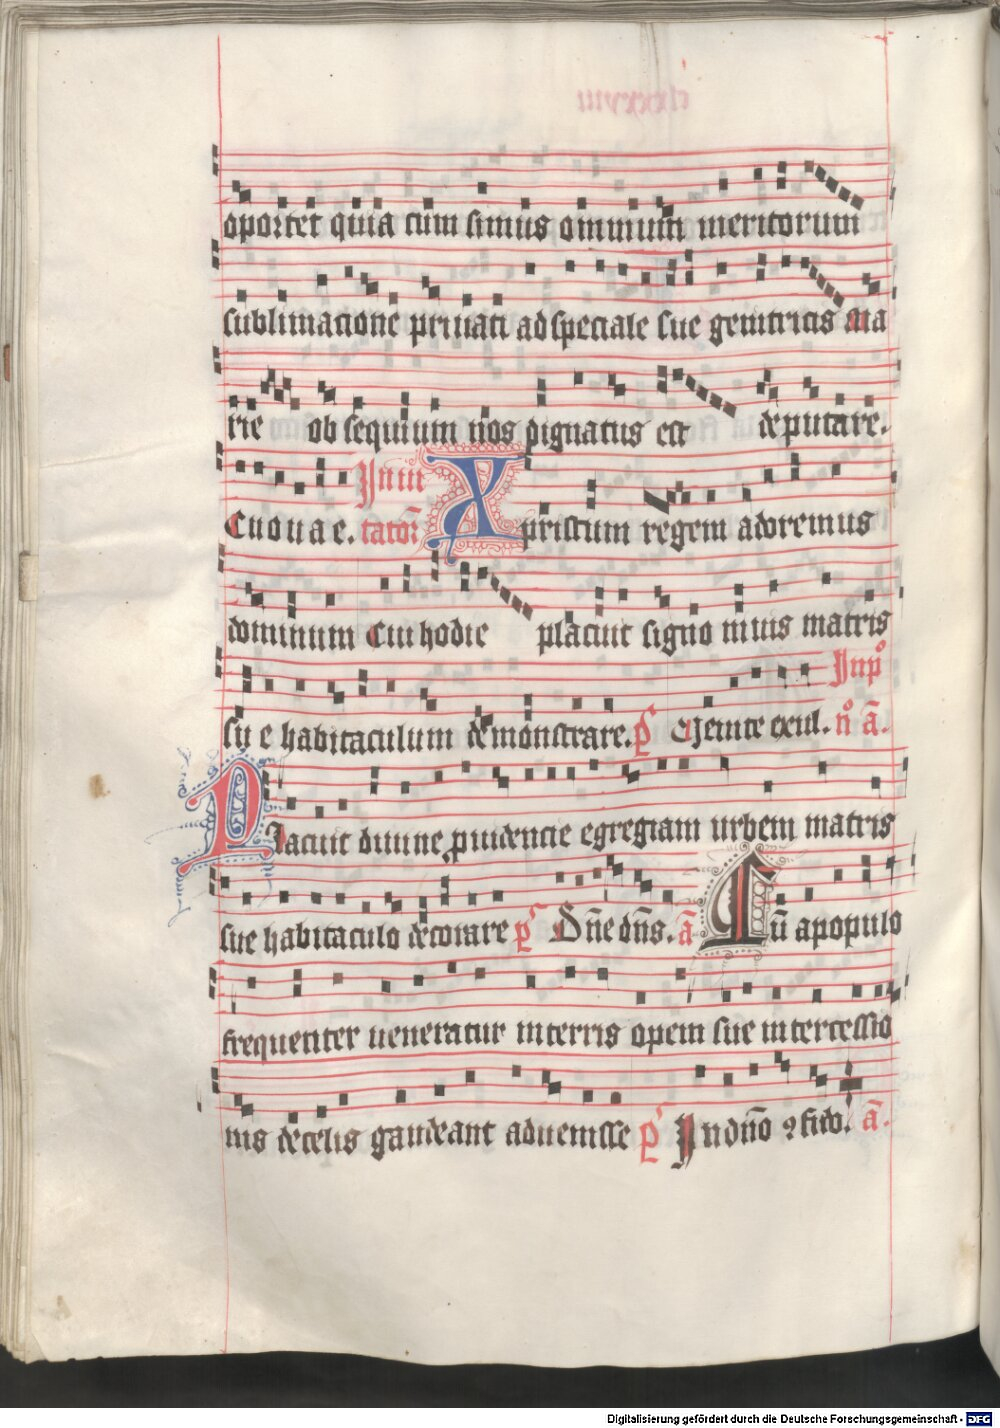 oportet quia cum simus omnium meritorum
sublimacione priuati ad speciale sue genitricis Ma
rie ob sequium nos dignatus est deputare.
Euouae. Inui tator̄ Xpristum regem adoremus
dominum Cui hodie placuit signo niuis matris
su e habitaculum demonstrare. p̄s Uenite exul. In p̊ n̊ ā.
Placuit diuine ꝓuidencie egregiam urbem matris
sue habitaculo decorare p̄s Dn̄e dn̄s. ā Cū a populo
frequenter ueneratur interris opem sue intercessio
nis de celis gaudeant aduenisse p̄s In dn̄o ꝯfido. ā.
Digitalisierung gefördert durch die Deutsche Forschungsgemeinschaft - DFG